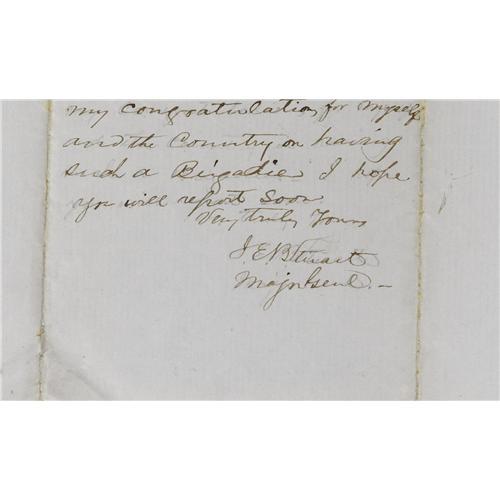 my congratulation, for myself
and the Country on having
such a Brigadier I hope
you will report soon
Very truly Yours
J.E.B Stuart
Majr Genl.